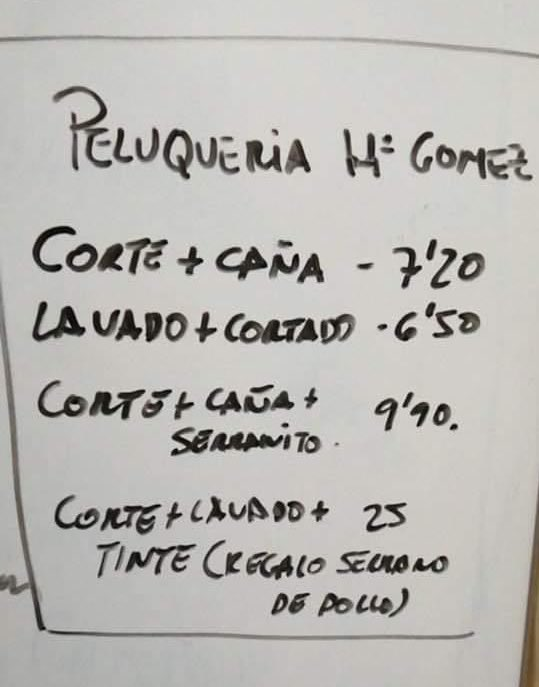 PELUQUERIA Mª GOMEZ
CORTE + CAÑA - 7'20
LAVADO + CORTADO - 6'50
CORTE + CAÑA + 9'90.
SERRANITO.
CORTE + LAVADO + 25
TINTE (REGALO SERRANO
DE POLLO)